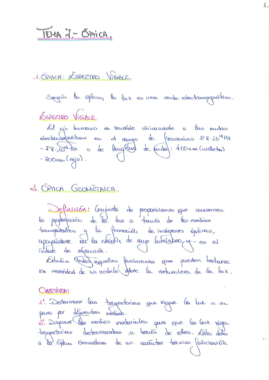 4.
TEMA 7.- ÓPICA.
1. ÓPICA: ESPECTRO VISIBLE.
Según la óptica, la luz es una onda electromagnética.
ESPECTRO VISIBLE.
El ojo humano es sensible únicamente a las ondas
electromagnéticas en el rango de
o de longitudes de onda: 400nm (violeta)
(rojo).
2. ÓPICA GEOMÉTRICA.
DEFINICIÓN: Conjunto de proposiciones que conciernen
la propagación de la luz a través de los medios
transparentes y la formación de imágenes ópticas,
en la noción de rayo luminoso, y en el
Estudia todos aquellos fenómenos que pueden tratarse
sin necesidad de un modelo sobre la naturaleza de la luz.
OBJETIVO:
1º Determinar las trayectorias que sigue la luz a su
paso por diferentes medios.
2º Disponer los medios materiales para que la luz siga
trayectorias determinadas a través de ellos. Esto dota
a la Óptica Geométrica de un carácter técnico